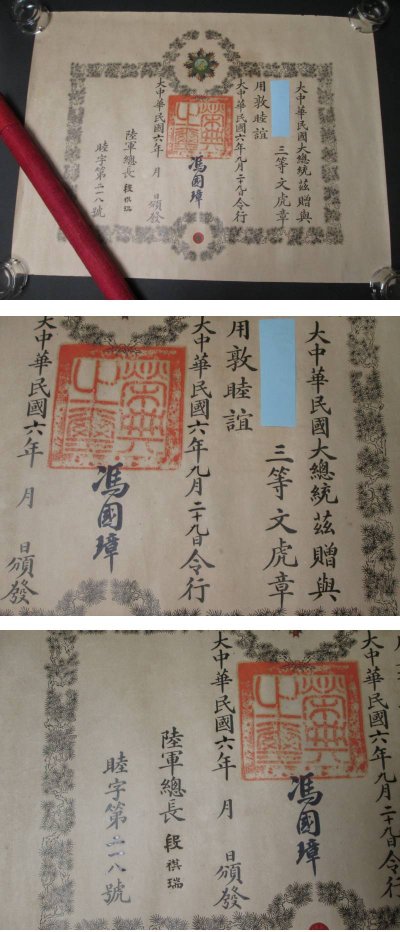 大中華民國大總統茲贈與
三等文虎章
用敦睦誼
大中華民國六年九月二十九日令行
榮典之璽
馮國璋
大中華民國六年 月 日頒發
陸軍總長 段祺瑞
睦字第二一八號
大中華民國大總統茲贈與
三等文虎章
用敦睦誼
大中華民國六年九月二十九日令行
榮典之璽
馮國璋
大中華民國六年 月 日頒發
大中華民國六年九月二十九日令
榮典之璽
馮國璋
大中華民國六年 月 日頒發
陸軍總長 段祺瑞
睦字第二一八號